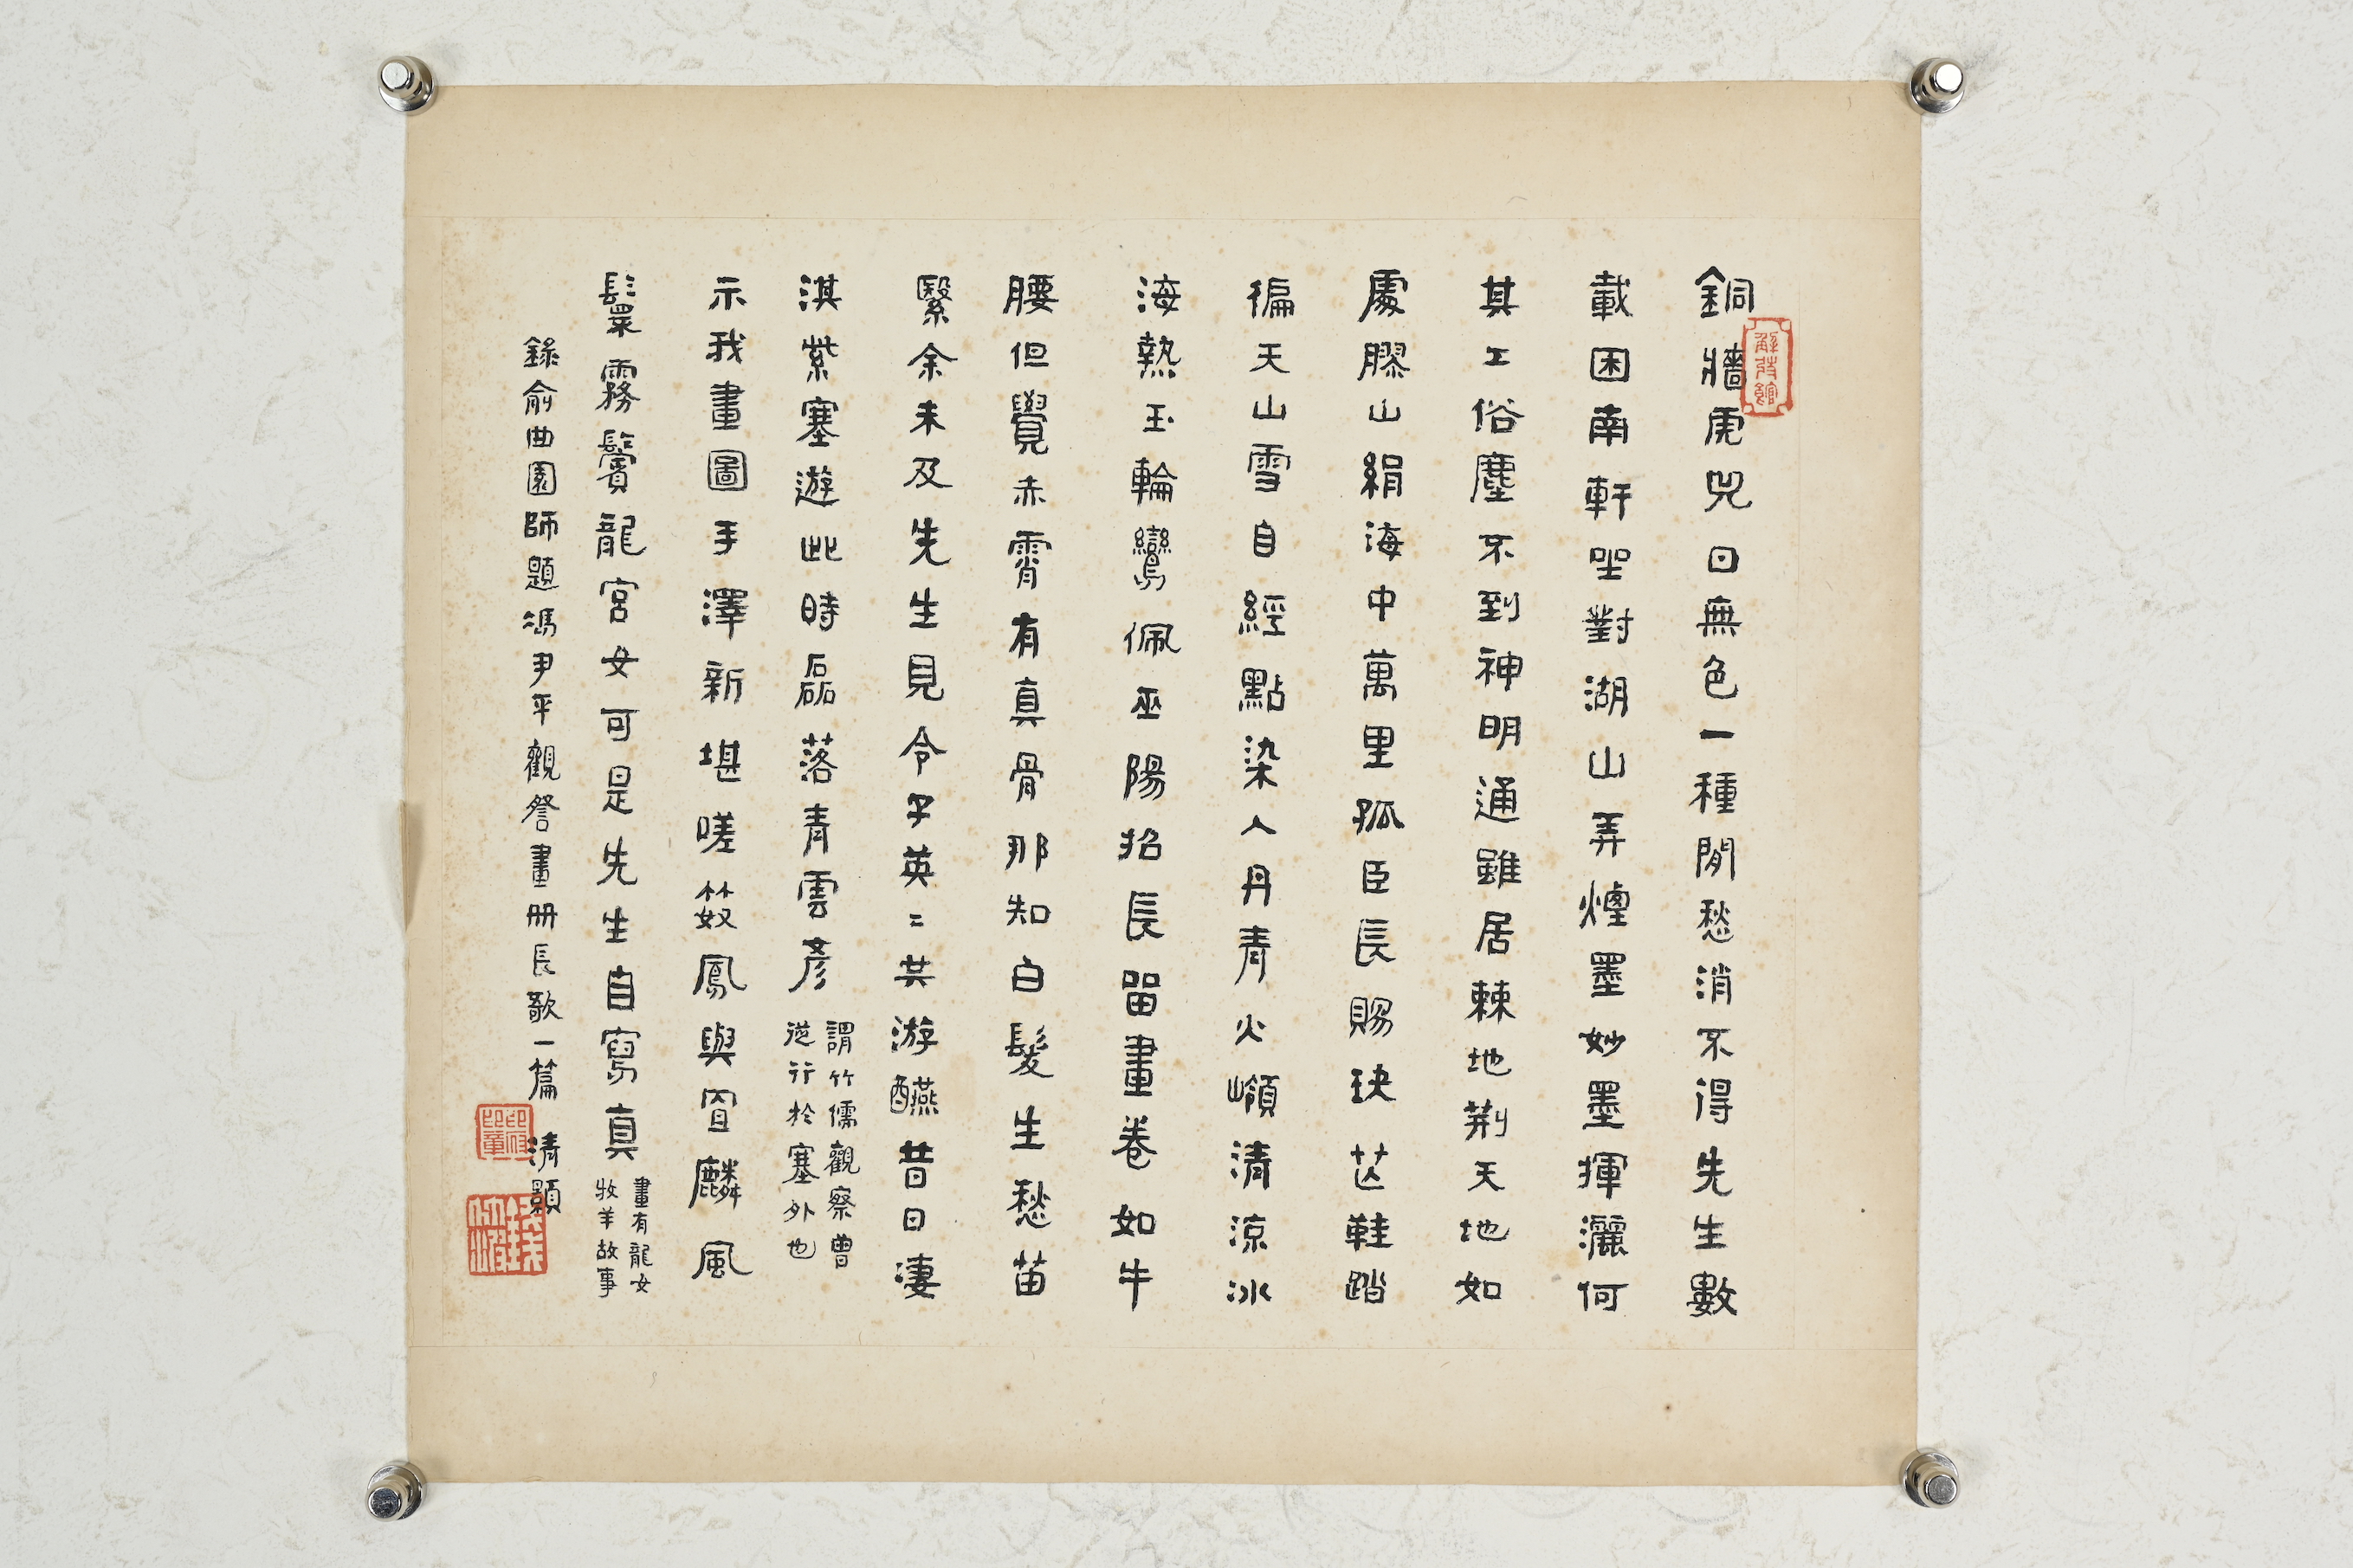 銅牆虎兕日無色一種閒愁消不得先生數
載困南軒坐對湖山弄煙墨妙墨揮灑何
其工俗塵不到神明通雖居棘地荆天地如
處膠山絹海中萬里孤臣長賜玦芒鞋踏
徧天山雪自經點染入丹青火嶺清涼冰
海熱玉輪鸞佩巫陽招長留畫卷如牛
腰但覺赤霄有真骨那知白髮生愁苗
繄余未及先生見令子英〻共游醼昔日凄
淇紫塞遊此時磊落青雲彥
謂竹儒觀察曾
從行於塞外也
示我畫圖手澤新堪嗟笯鳳與罝麟風
鬟霧鬢龍宮女可是先生自寫真
畫有龍女
牧羊故事
錄俞曲園師題馮尹平觀詧畫册長歌一篇 清顥